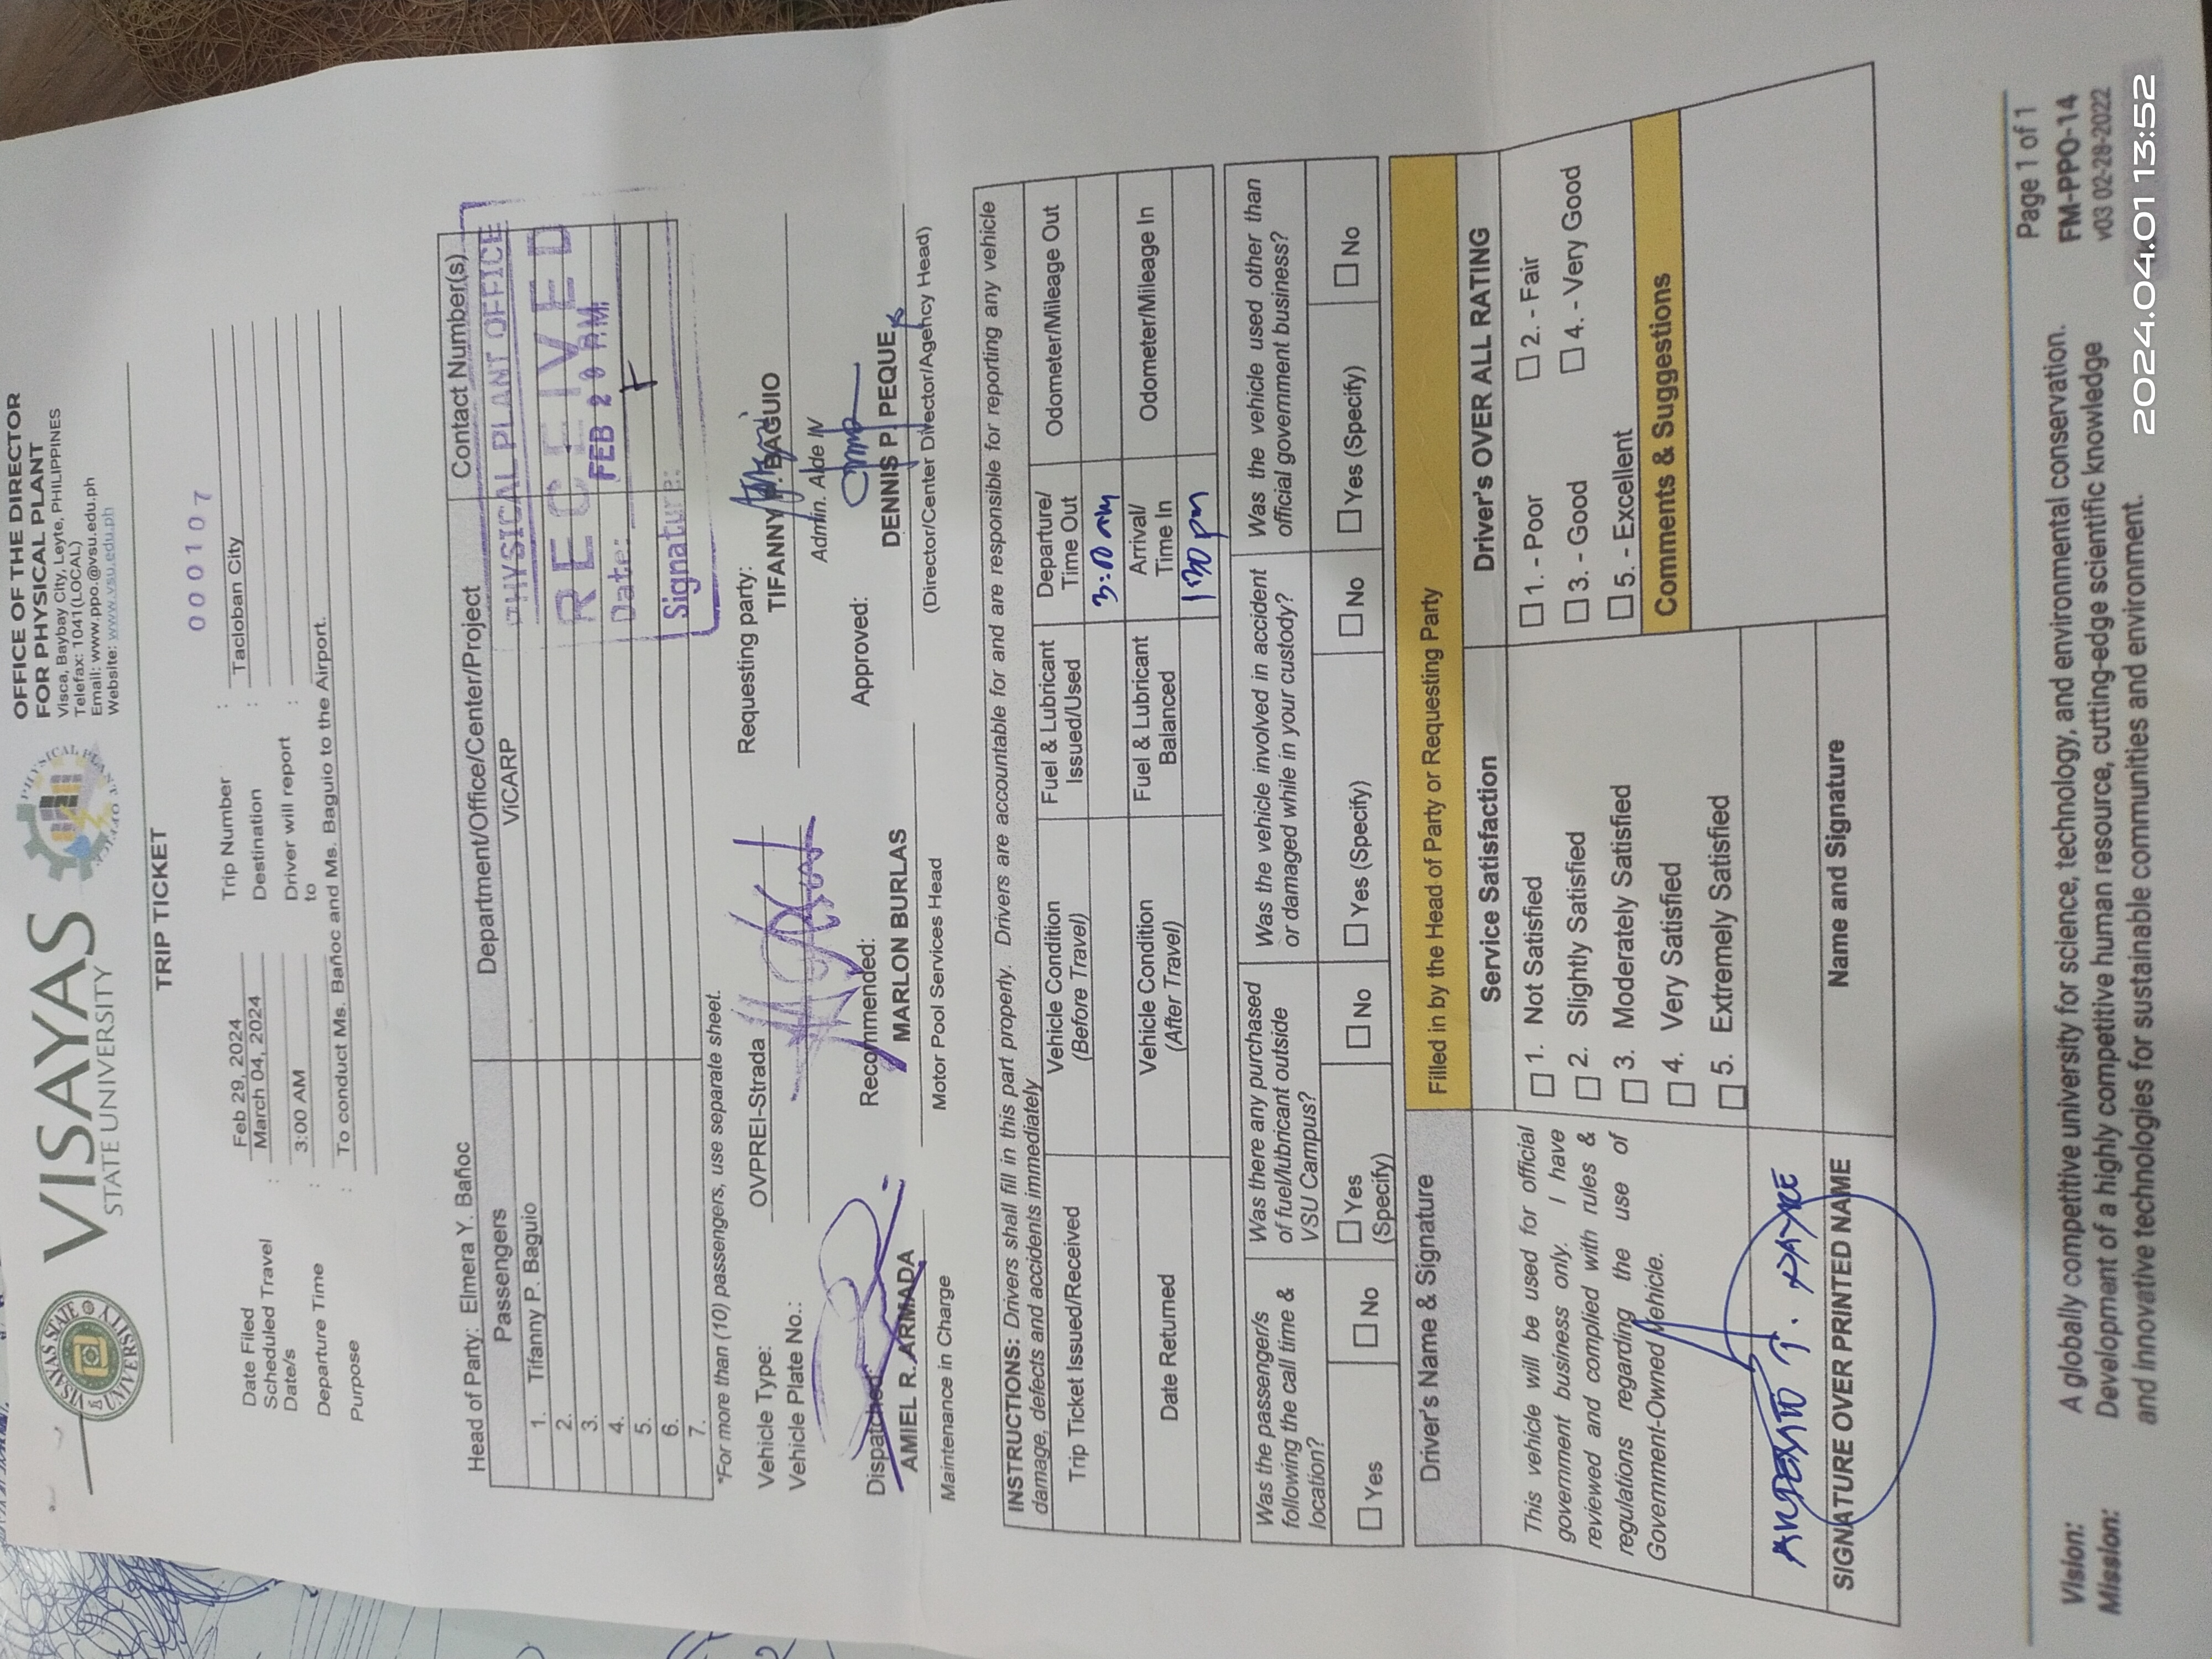 VISAYAS
STATE UNIVERSITY
OFFICE OF THE DIRECTOR
FOR PHYSICAL PLANT
Visca, Baybay City, Leyte, PHILIPPINES
Telefax: 1041(LOCAL)
Email: www.ppo.@vsu.edu.ph
Website: www.vsu.edu.ph
TRIP TICKET
000107
Date Filed : Feb 29, 2024
Scheduled Travel Date/s March 04, 2024
Departure Time : 3:00 AM
Purpose : To conduct Ms. Bañoc and Ms. Baguio to the Airport.
Trip Number :
Destination : Tacloban City
Driver will report to :
Head of Party: Elmera Y. Bañoc
Passengers Department/Office/Center/Project Contact Number(s)
1. Tifanny P. Baguio ViCARP
2.
3.
4.
5.
6.
7.
PHYSICAL PLANT OFFICE
RECEIVED
Date: FEB 29 A.M.
Signature:
*For more than (10) passengers, use separate sheet.
Vehicle Type: OVPREI-Strada
Vehicle Plate No.:
Requesting party:
TIFANNY P. BAGUIO
Admin. Aide IV
Dispatched: Recommended: Approved:
AMIEL R. ARMADA MARLON BURLAS DENNIS P. PEQUE
Maintenance in Charge Motor Pool Services Head (Director/Center Director/Agency Head)
INSTRUCTIONS: Drivers shall fill in this part properly. Drivers are accountable for and are responsible for reporting any vehicle
damage, defects and accidents immediately
Trip Ticket Issued/Received Vehicle Condition (Before Travel) Fuel & Lubricant Issued/Used Departure/ Time Out Odometer/Mileage Out
3:00 am
Date Returned Vehicle Condition (After Travel) Fuel & Lubricant Balanced Arrival/ Time In Odometer/Mileage In
1:30 pm
Was the passenger/s following the call time & location?
Was there any purchased of fuel/lubricant outside VSU Campus?
Was the vehicle involved in accident or damaged while in your custody?
Was the vehicle used other than official government business?
Yes No Yes (Specify) No Yes (Specify) No Yes (Specify) No
Driver's Name & Signature Filled in by the Head of Party or Requesting Party
Service Satisfaction Driver's OVER ALL RATING
This vehicle will be used for official
government business only. I have
reviewed and complied with rules &
regulations regarding the use of
Government-Owned Vehicle.
1. Not Satisfied
2. Slightly Satisfied
3. Moderately Satisfied
4. Very Satisfied
5. Extremely Satisfied
1. - Poor 2. - Fair
3. - Good 4. - Very Good
5. - Excellent
Comments & Suggestions
SIGNATURE OVER PRINTED NAME Name and Signature
Vision: A globally competitive university for science, technology, and environmental conservation.
Mission: Development of a highly competitive human resource, cutting-edge scientific knowledge
and innovative technologies for sustainable communities and environment.
Page 1 of 1
FM-PPO-14
v03 02-28-2022
2024.04.01 13:52